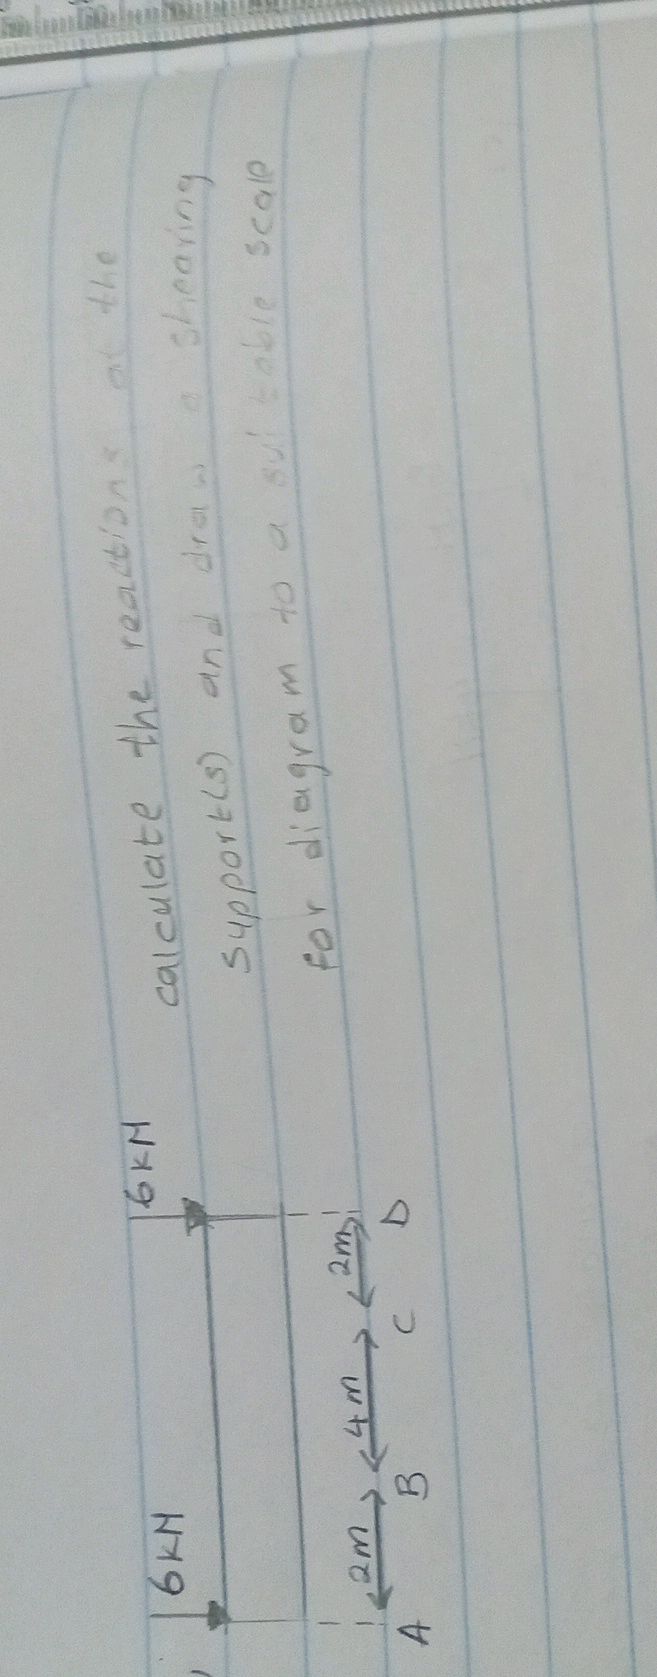 6KN
6KN
2m
4m
2m
A
B
C
D
calculate the reactions at the
support(s) and draw a shearing
for diagram to a suitable scale